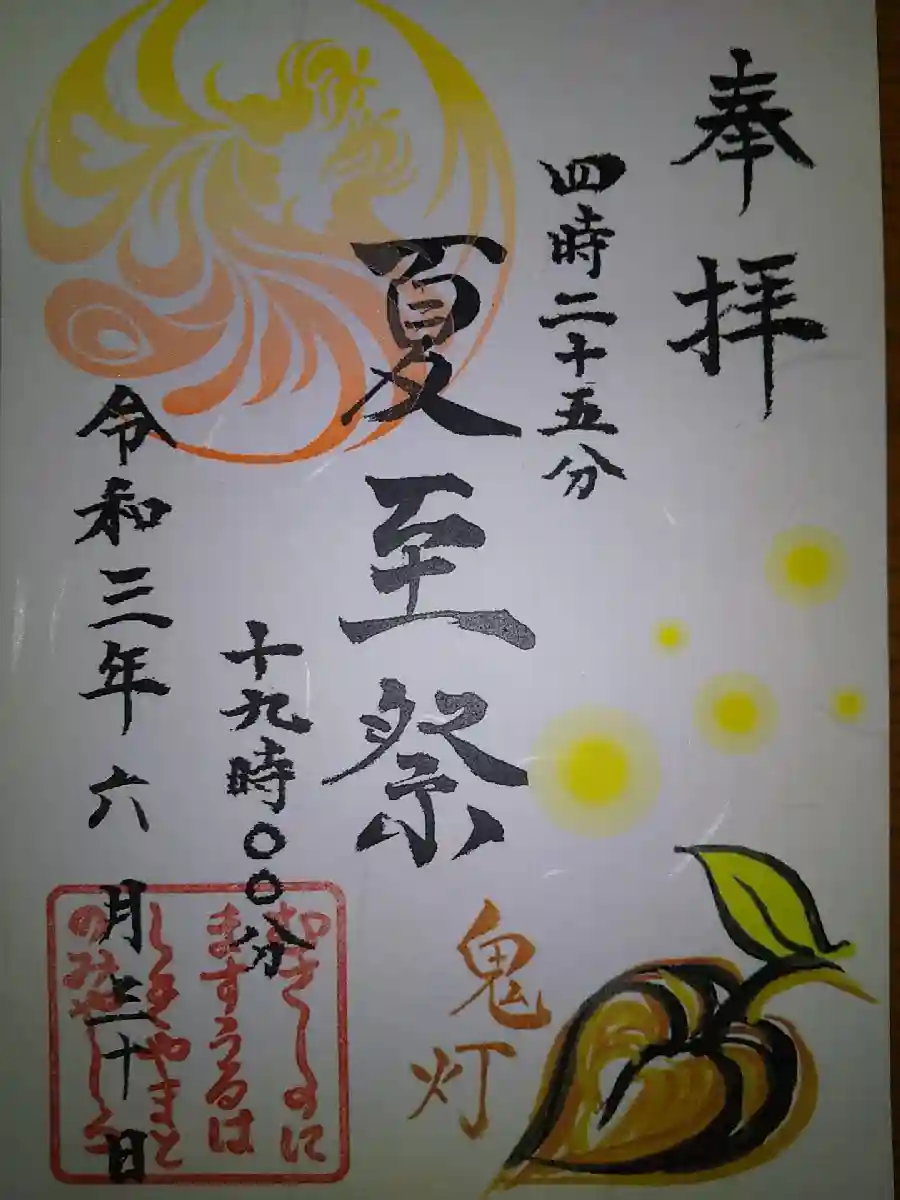 奉拝
四時二十五分
夏至祭
十九時〇〇分
令和三年六月三十日
鬼灯
むさしのに
ますうるは
しきやまと
のみやしろ